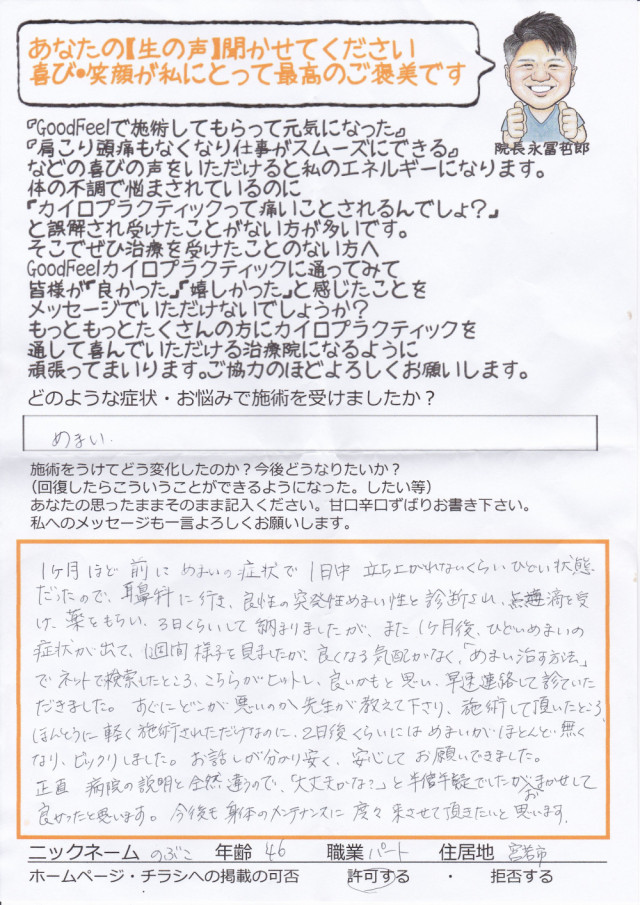 あなたの【生の声】聞かせてください
喜び•笑顔が私にとって最高のご褒美です
院長永冨哲郎
『GoodFeelで施術してもらって元気になった』
『肩こり頭痛もなくなり仕事がスムーズにできる』
などの喜びの声をいただけると私のエネルギーになります。
体の不調で悩まされているのに
「カイロプラクティックって痛いことされるんでしょ?」
と誤解され受けたことがない方が多いです。
そこでぜひ治療を受けたことのない方へ
GoodFeelカイロプラクティックに通ってみて
皆様が「良かった」「嬉しかった」と感じたことを
メッセージでいただけないでしょうか?
もっともっとたくさんの方にカイロプラクティックを
通して喜んでいただける治療院になるように
頑張ってまいります。ご協力のほどよろしくお願いします。
どのような症状・お悩みで施術を受けましたか?
めまい.
施術をうけてどう変化したのか?今後どうなりたいか?
(回復したらこういうことができるようになった。したい等)
あなたの思ったままそのまま記入ください。甘口辛口ずばりお書き下さい。
私へのメッセージも一言よろしくお願いします。
1ヶ月ほど前にめまいの症状で1日中立ち上がれないくらいひどい状態
だったので、耳鼻科に行き、良性の突発性めまい性と診断され、点滴を受
け、薬をもらい、3日くらいして納まりましたが、また1ヶ月後、ひどいめまいの
症状が出て、1週間様子を見ましたが、良くなる気配がなく、「めまい治す方法」
でネットで検索したところ、こちらがヒットし、良いかもと思い、早速連絡して診ていた
だきました。すぐにどこが悪いのか先生が教えて下さり、施術して頂いたところ
ほんとうに軽く施術されただけなのに、2日後くらいにはめまいがほとんど無く
なり、ビックリしました。お話しが分かり安く、安心してお願いできました。
正直病院の説明と全然違うので、「大丈夫かな?」と半信半疑でしたがおまかせして
良かったと思います。今後も身体のメンテナンスに度々来させて頂きたいと思います.
ニックネーム のぶこ 年齢 46 職業 パート 住居地 宮若市
ホームページ・チラシへの掲載の可否 許可する ・ 拒否する